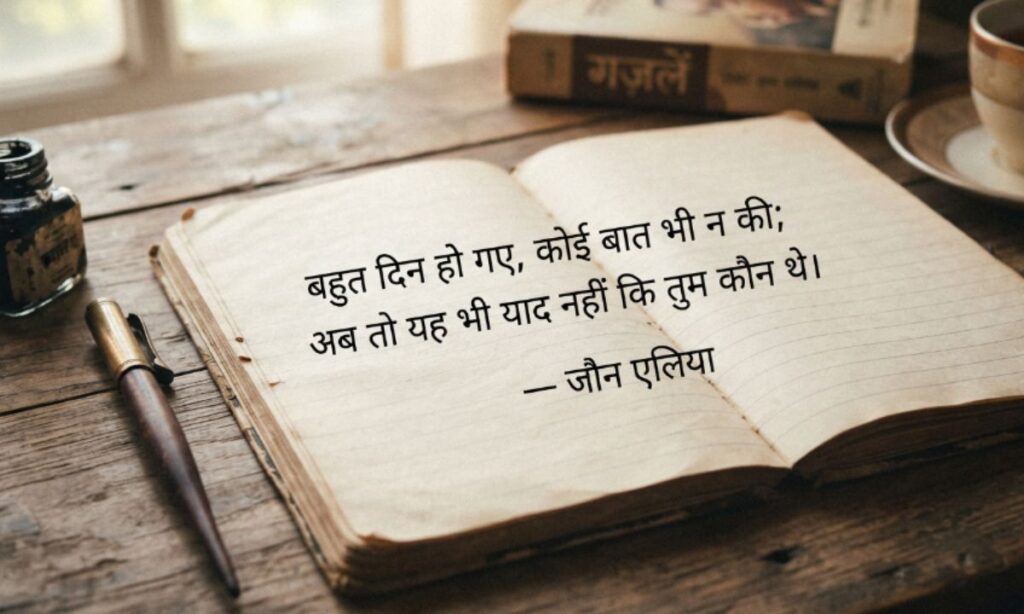 गज़लें
बहुत दिन हो गए, कोई बात भी न की;
अब तो यह भी याद नहीं कि तुम कौन थे।
— जौन एलिया